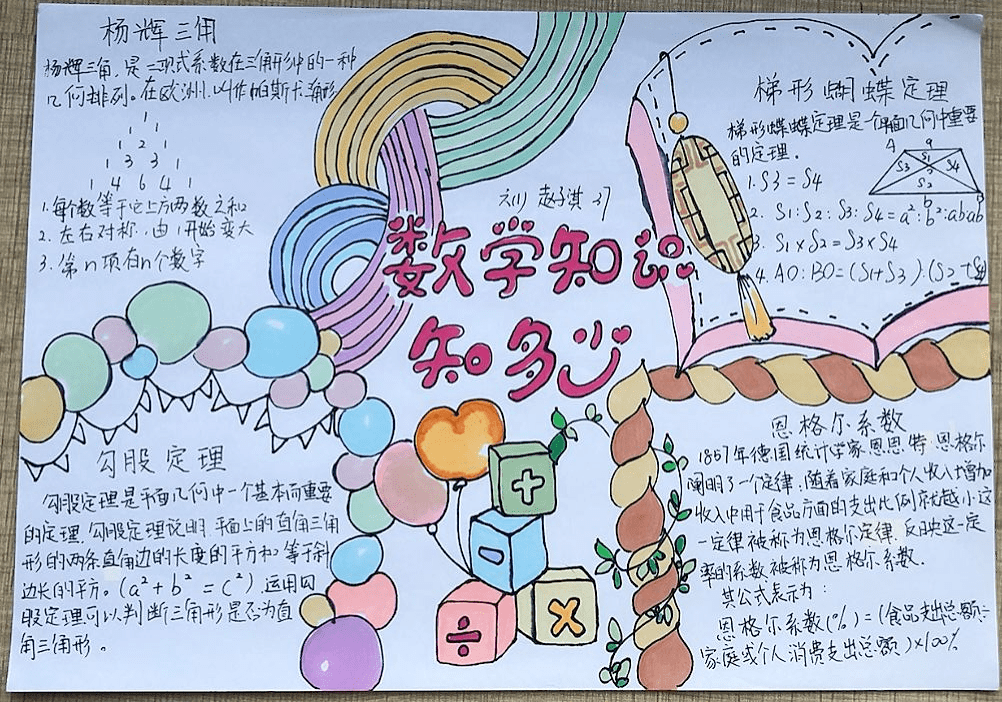 杨辉三角
杨辉三角,是二项式系数在三角形中的一种
几何排列。在欧洲,叫作帕斯卡三角形
1
1 1
1 2 1
1 3 3 1
1 4 6 4 1
1.每个数等于它上方两数之和
2.左右对称,由1开始变大
3.第n项有n个数字
六(1) 赵子淇 37
数学知识
知多少
梯形蝴蝶定理
梯形蝴蝶定理是个平面几何中重要
的定理。
A a
S1
S3 S4
S2
b B
1.S3=S4
2.S1:S2:S3:S4=a²:b²:ab:ab
3.S1×S2=S3×S4
4.AO:BO=(S1+S3):(S2+S4)
勾股定理
勾股定理是平面几何中一个基本而重要
的定理.勾股定理说明,平面上的直角三角
形的两条直角边的长度的平方和等于斜
边长的平方。(a²+b²=c²).运用勾
股定理可以判断三角形是否为直
角三角形。
+
-
÷
×
恩格尔系数
1857年德国统计学家恩思特·恩格尔
阐明了一个定律:随着家庭和个人收入增加
收入中用于食品方面的支出比例就越小,这
一定律被称为恩格尔定律,反映这一定
率的系数被称为恩格尔系数.
其公式表示为:
恩格尔系数(%)=(食品支出总额÷
家庭或个人消费支出总额)×100%